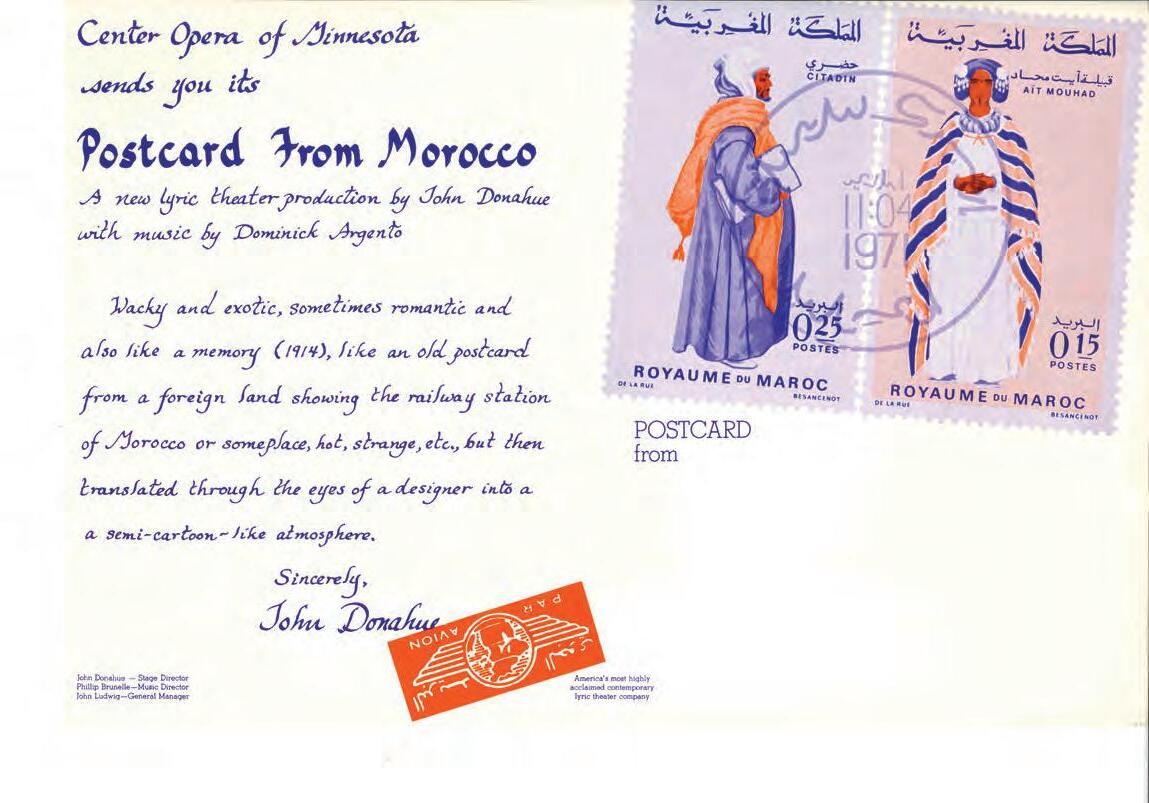 Center Opera of Minnesota
sends you its
Postcard From Morocco
A new lyric theater production by John Donahue
with music by Dominick Argento
Wacky and exotic, sometimes romantic and
also like a memory (1914), like an old postcard
from a foreign land showing the railway station
of Morocco or someplace, hot, strange, etc., but then
translated through the eyes of a designer into a
a semi-cartoon-like atmosphere.
Sincerely,
John Donahue
PAR AVION
John Donahue — Stage Director
Phillip Brunelle—Music Director
John Ludwig—General Manager
America's most highly
acclaimed contemporary
lyric theater company
المملكة المغربية
حضري
CITADIN
11:04
1971
البريد
0.25
POSTES
ROYAUME DU MAROC
DE LA RUE
BESANCENOT
المملكة المغربية
قبيلة أيت محاد
AÏT MOUHAD
البريد
0.15
POSTES
ROYAUME DU MAROC
DE LA RUE
BESANCENOT
POSTCARD
from